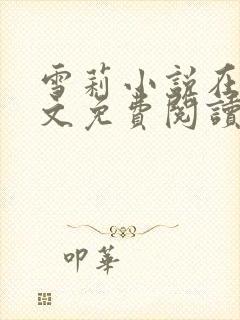 雪莉小說在
文免費閱讀
叩華